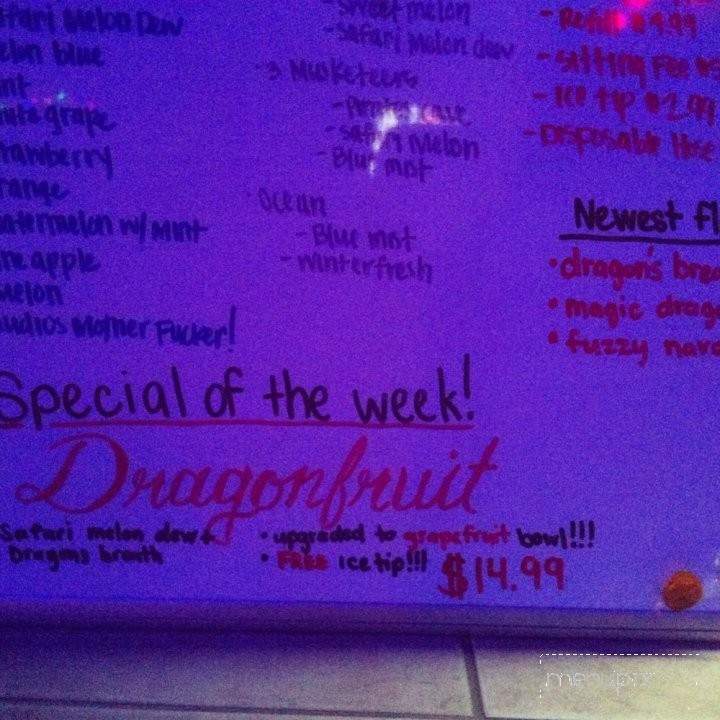 Safari Melon Dew
melon blue
mint
white grape
strawberry
orange
watermelon w/ Mint
pineapple
melon
Mother Fucker!
- sweet melon
- Safari Melon dew
· 3 Musketeers
- Pirates cave
- safari Melon
- Blue mist
· Ocean
- Blue mist
- winterfresh
- Refill $9.99
- Sitting Fee $
- Ice tip $2.99
- Disposable Hose
Newest fl
· dragon's brea
· magic drag
· fuzzy nav
Special of the week!
Dragonfruit
Safari melon dew +
Dragons breath
· upgraded to grapefruit bowl!!!
· FREE ice tip!!! $14.99
menupix